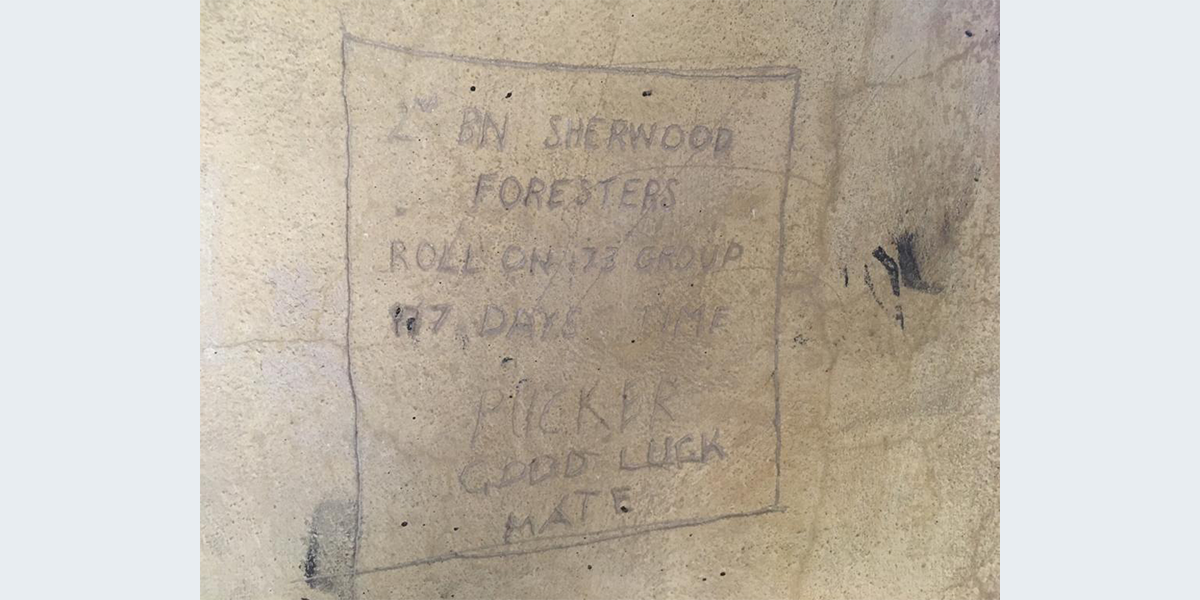 2ND BN SHERWOOD
FORESTERS
ROLL ON 73 GROUP
DAYS TIME
PUCKER
GOOD LUCK
MATE